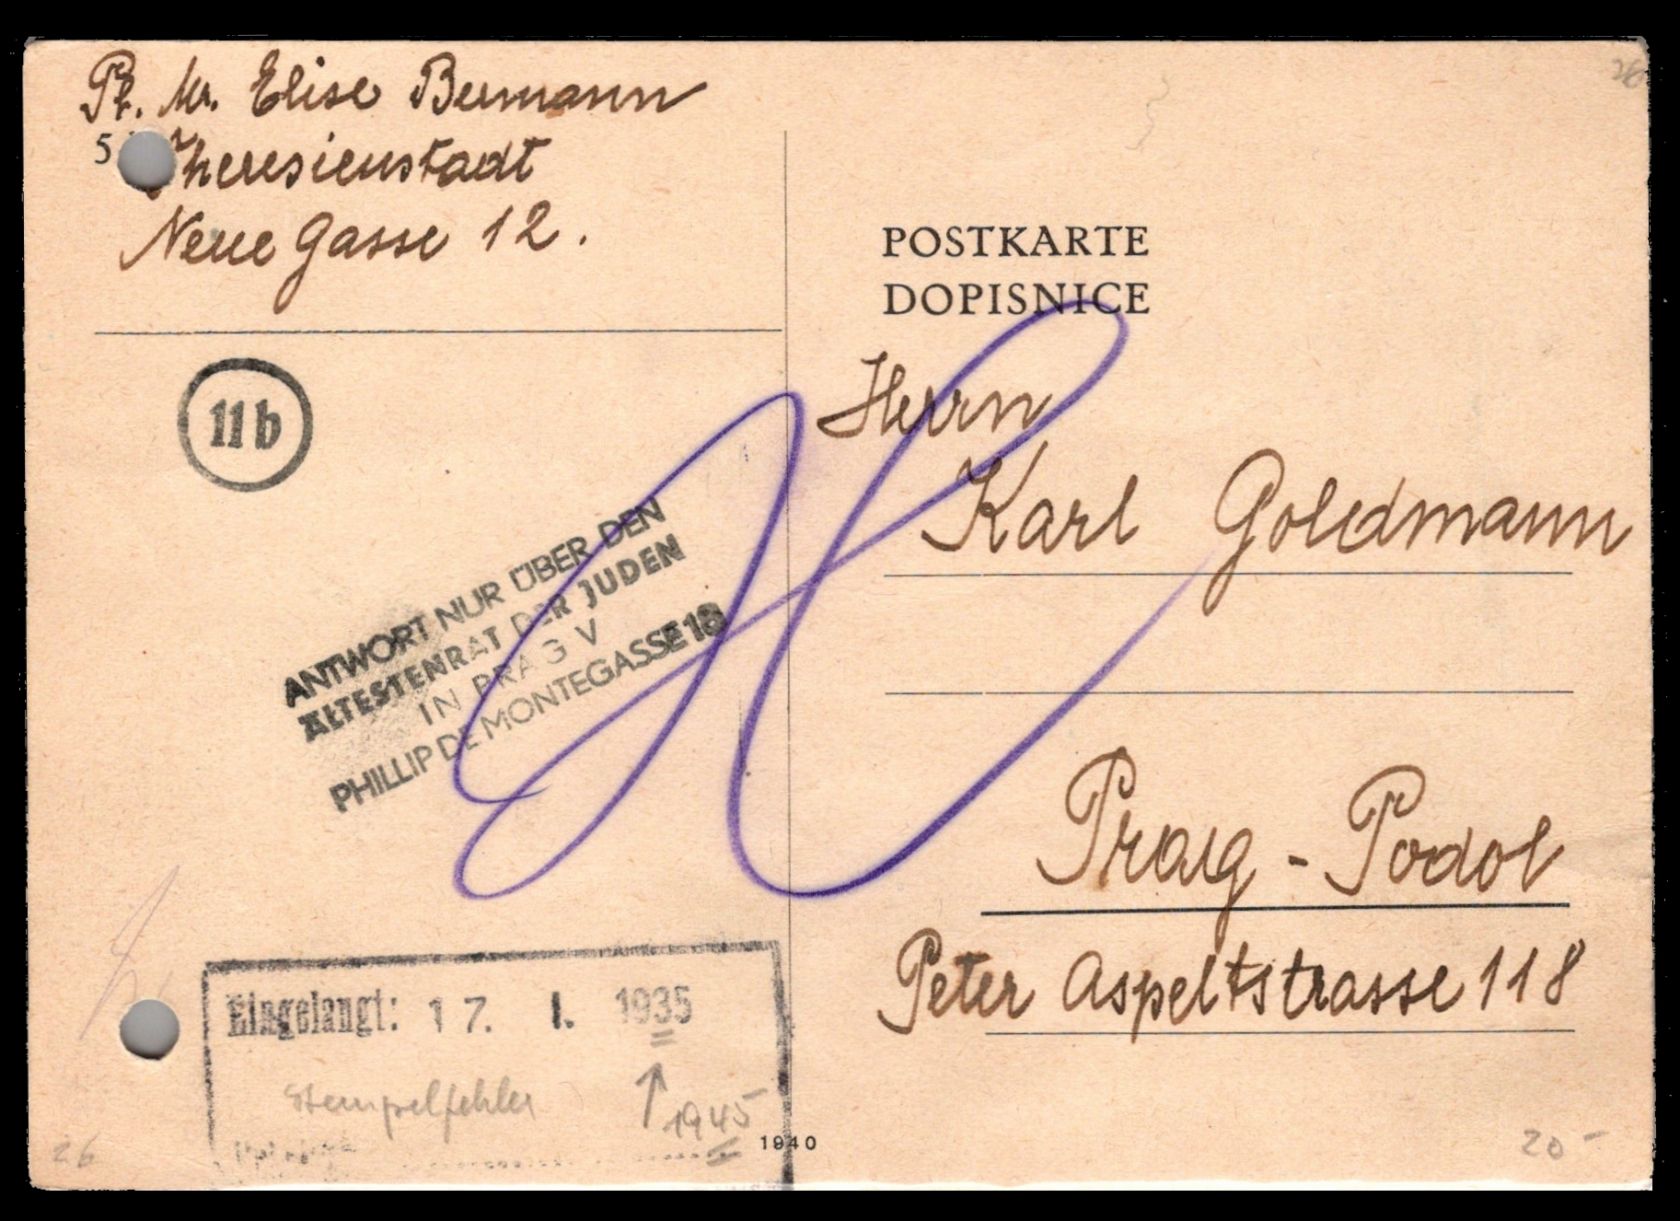 Pt. Mr. Elise Bermann
5
Theresienstadt
Neue Gasse 12.
11b
ANTWORT NUR ÜBER DEN
ÄLTESTENRAT DER JUDEN
IN PRAG V
PHILLIP DE MONTEGASSE 18
Eingelangt: 17. I. 1935
Stempelfehler ↑ 1945
1940
26
POSTKARTE
DOPISNICE
Herrn
Karl Goldmann
Prag - Podol
Peter Aspeltstrasse 118
20 -